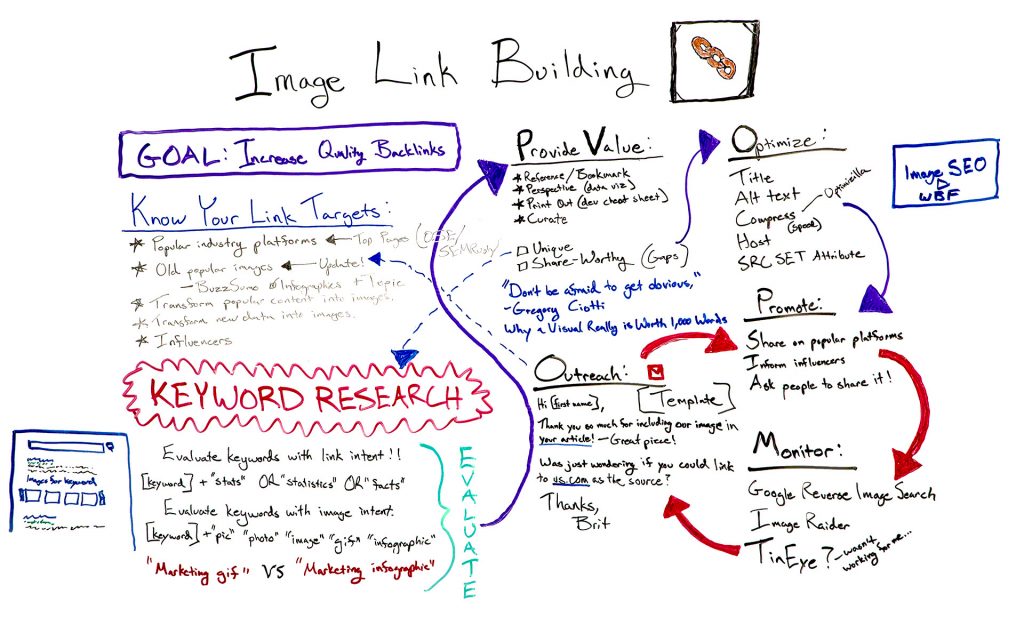 Image Link Building
GOAL: Increase Quality Backlinks
Know Your Link Targets:
* Popular industry platforms ← Top Pages (OSE/
SEMRush)
* Old popular images ← Update!
- BuzzSumo Infographics + Topic
* Transform popular content into images.
* Transform new data into images.
* Influencers
KEYWORD RESEARCH
Images for keyword
Evaluate keywords with link intent!!
[keyword] + "stats" OR "statistics" OR "facts"
Evaluate keywords with image intent:
[keyword] + "pic" "photo" "image" "gif" "infographic"
"Marketing gif" VS "Marketing infographic"
EVALUATE
Provide Value:
* Reference/Bookmark
* Perspective (data viz)
* Print Out (dev cheat sheet)
* Curate
□ Unique
□ Share-Worthy (Gaps)
"Don't be afraid to get obvious,"
- Gregory Ciotti
Why a Visual Really is Worth 1,000 Words
Outreach:
[Template]
Hi [first name],
Thank you so much for including our image in
your article! - Great piece!
Was just wondering if you could link
to us.com as the source?
Thanks,
Brit
Optimize:
Title
Alt text
Compress - Optimizilla
(speed)
Host
SRC SET Attribute
Image SEO
WBF
Promote:
Share on popular platforms
Inform influencers
Ask people to share it!
Monitor:
Google Reverse Image Search
Image Raider
TinEye? - wasn't
working for me...